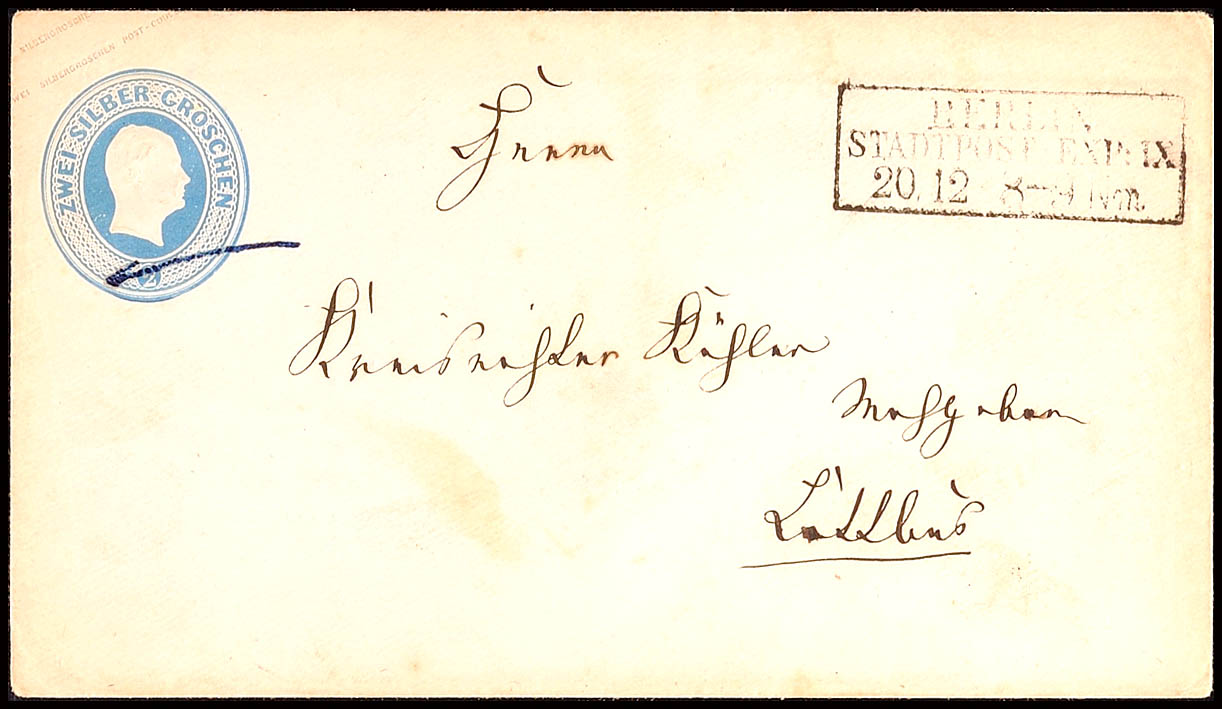 SILBERGROSCHE
ZWEI SILBERGROSCHEN POST-COUV
ZWEI SILBER GROSCHEN
2
BERLIN
STADTPOST-EXP: IX
20 12 8-9 Nm.
Herrn
Kreisrichter Köhler
Wohlgeboren
Cottbus